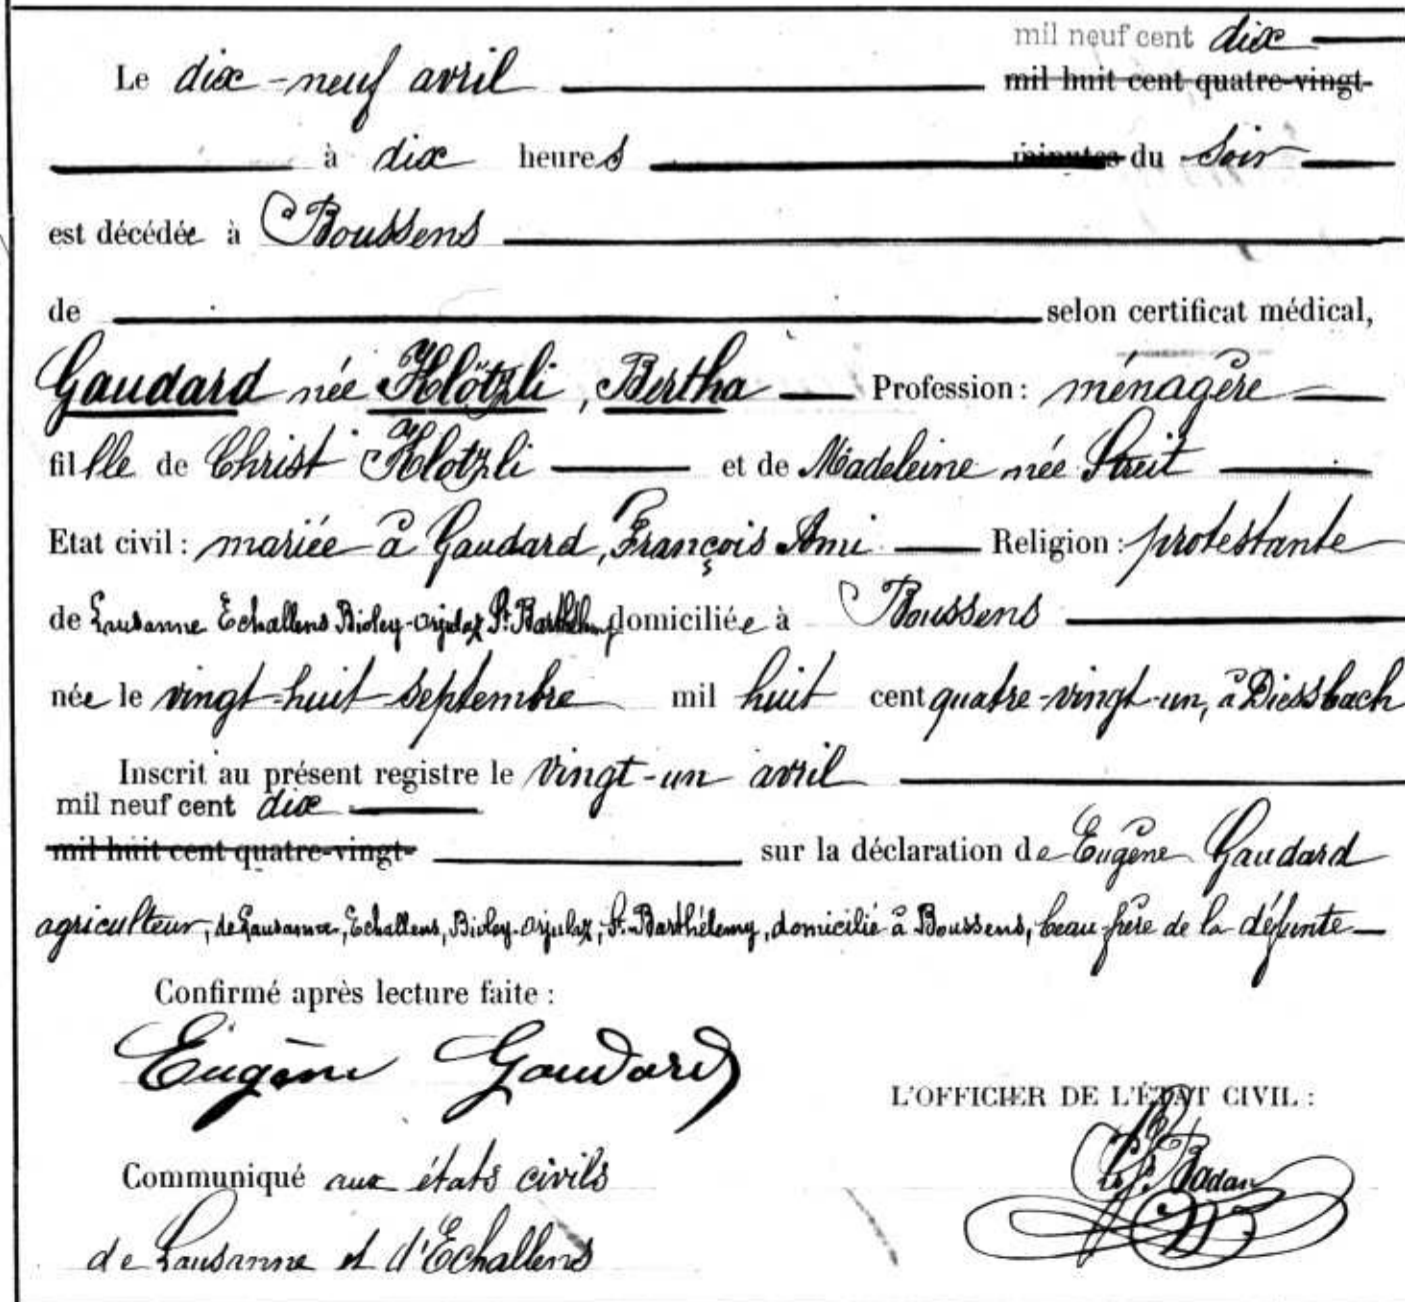 mil neuf cent dix
Le dix-neuf avril mil huit cent quatre-vingt-
à dix heures minutes du soir
est décédée à Boussens
de selon certificat médical,
Gaudard née Klötzli, Bertha Profession : ménagère
fille de Christ Klötzli et de Madeleine née Streit
Etat civil : mariée à Gaudard, François Ami Religion : protestante
de Lausanne Echallens Bioley-Orjulaz St. Barthélemy domiciliée à Boussens
née le vingt-huit septembre mil huit cent quatre-vingt-un, à Diessbach
Inscrit au présent registre le vingt-un avril
mil neuf cent dix
mil huit cent quatre-vingt- sur la déclaration de Eugène Gaudard
agriculteur, de Lausanne, Echallens, Bioley-Orjulaz, St. Barthélemy, domicilié à Boussens, beau-frère de la défunte
Confirmé après lecture faite :
Eugène Gaudard
L'OFFICIER DE L'ÉTAT CIVIL :
Badan
Communiqué aux états civils
de Lausanne et d'Echallens